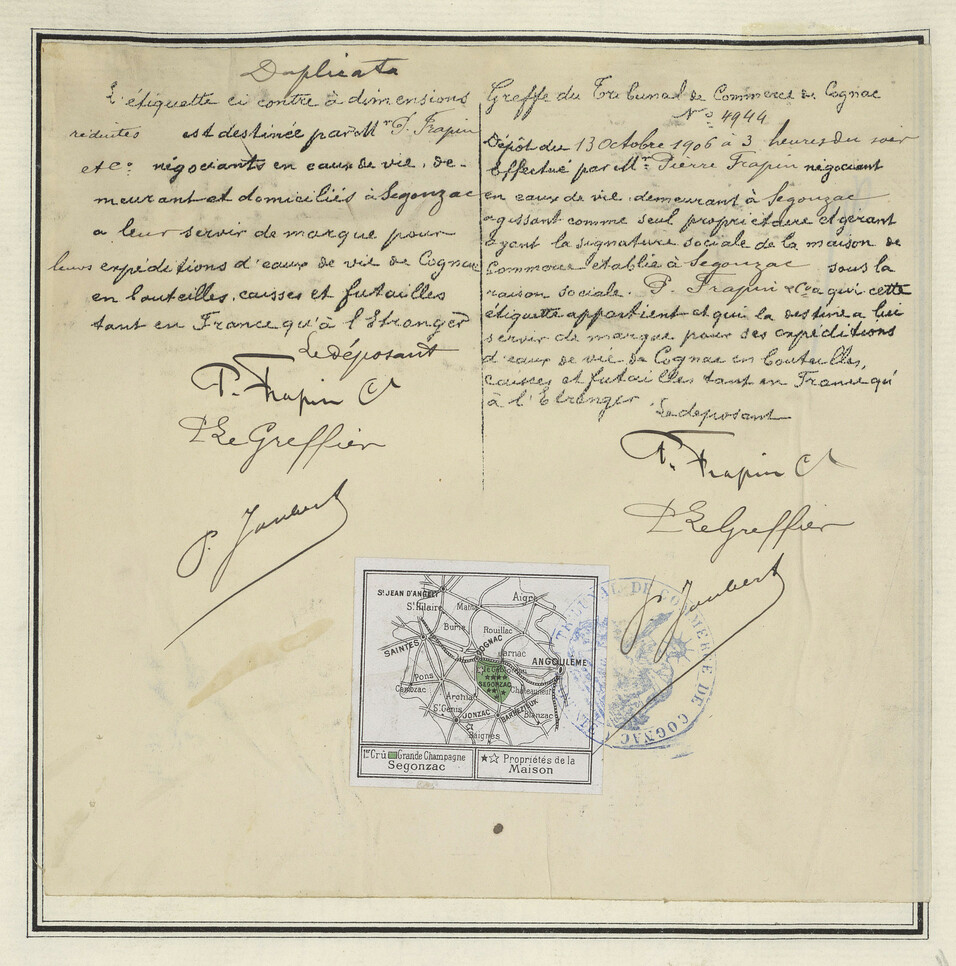 Duplicata
L'étiquette ci contre à dimensions
réduites est destinée par Mr P. Frapin
et Co négociants en eaux de vie, de-
meurant et domiciliés à Segonzac
a leur servir de marque pour
leurs expéditions d'eaux de vie de Cognac
en bouteilles, caisses et futailles
tant en France qu'à l'Etranger
Le déposant
P. Frapin Co
P Le Greffier
P. Jaubert
Greffe du Tribunal de Commerce de Cognac
No 4944
Dépôt du 13 Octobre 1906 à 3 heures du soir
Effectué par Mr Pierre Frapin négociant
en eaux de vie demeurant à Segonzac
agissant comme seul propriétaire et gérant
ayant la signature sociale de la maison de
Commerce etablie à Segonzac sous la
raison sociale. P. Frapin & Co a qui cette
étiquette appartient et qui la destine a lui
servir de marque pour ses expéditions
d'eaux de vie de Cognac en bouteilles,
caisses et futailles tant en France qu'
à l'Etranger
Le deposant
P. Frapin Co
P Le Greffier
P. Jaubert
TRIBUNAL DE COMMERCE DE COGNAC
St JEAN D'ANGELY
St Hilaire
Matha
Aigre
Burie
Rouillac
SAINTES
COGNAC
Jarnac
ANGOULEME
Pons
SEGONZAC
Chateauneuf
Gemozac
Archiac
St Genis
JONZAC
BARBEZIEUX
Blanzac
Saignes
1er Crû Grande Champagne
Segonzac
Propriétés de la
Maison